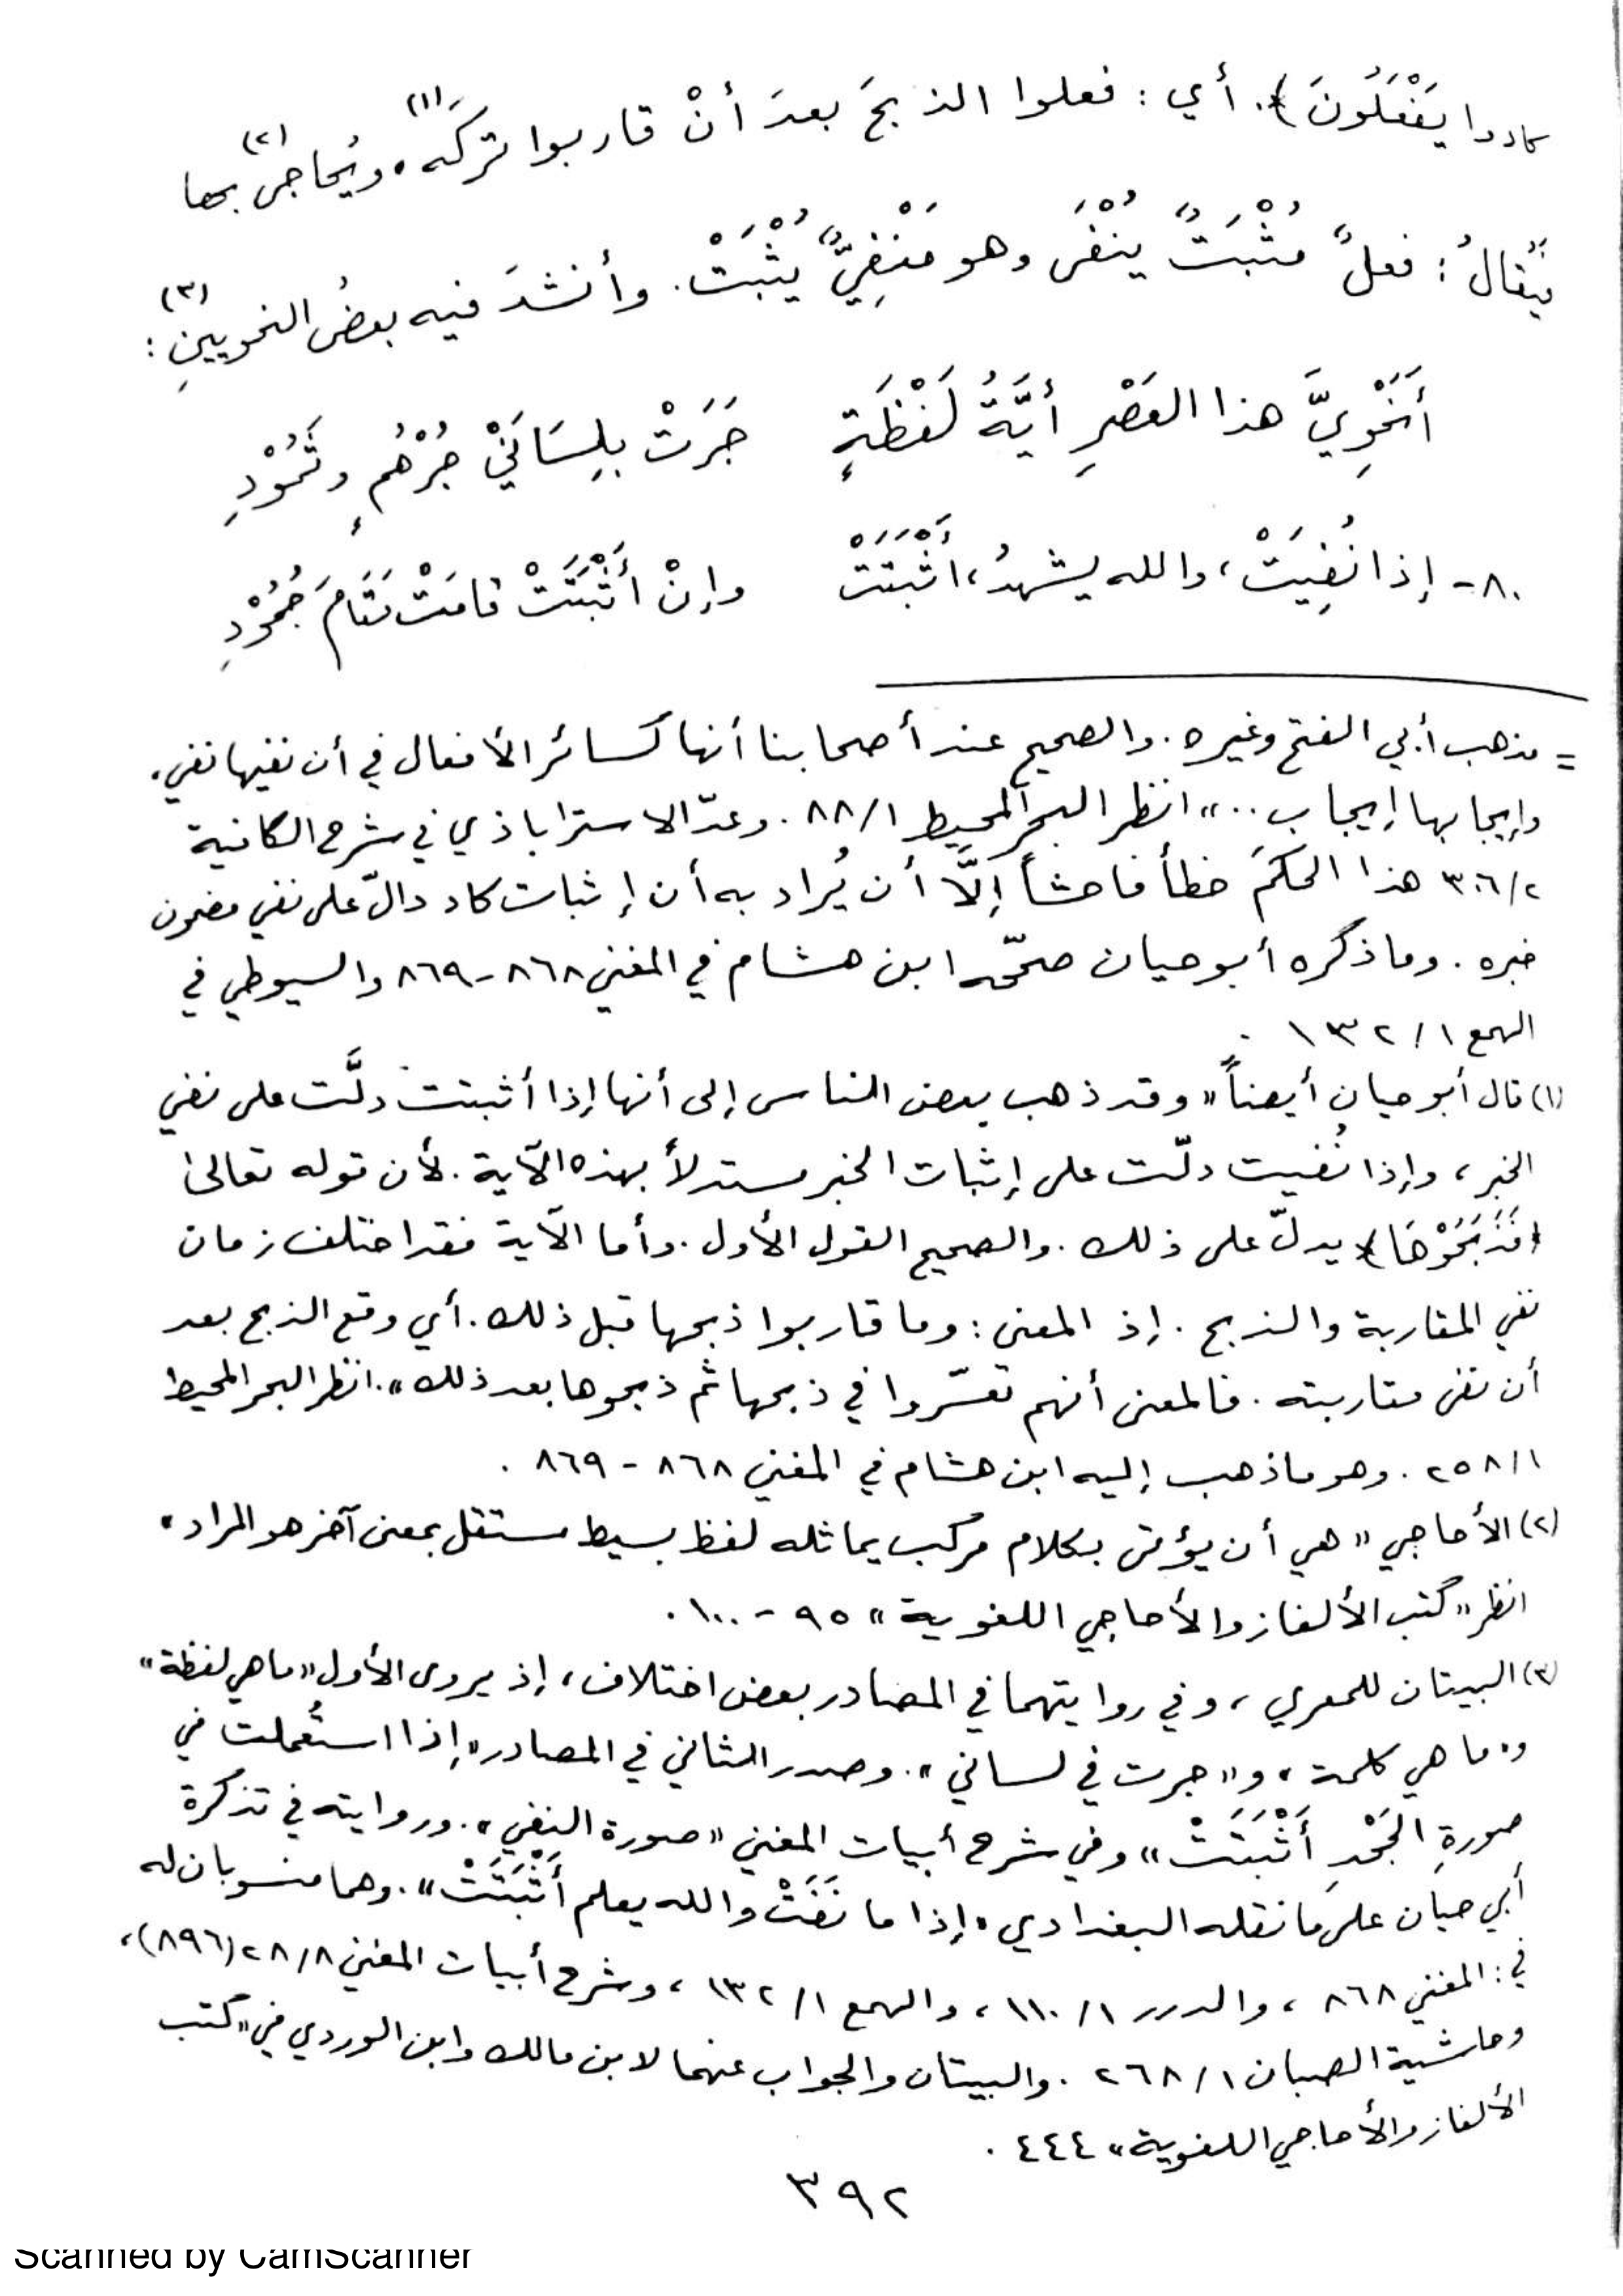 كادوا يَفْعَلُونَ﴾. أي : فعلوا الذبحَ بعدَ أنْ قاربوا تركَه(١)، ويُحاجى(٢) بها
فيُقالُ : فعلٌ مُثْبَتٌ يُنْفَى وهو مَنْفِيٌّ يُثْبَتْ. وأنشدَ فيه بعضُ النحويينِ(٣) :
أَنَحْوِيَّ هذا العَصْرِ أيَّةُ لَفْظَةٍ جَرَتْ بلِسَانَيْ جُرْهُمٍ وثَمُوْدِ
٨٠- إذا نُفِيَتْ، والله يشهدُ، أَثْبَتَتْ وإنْ أَثْبَتَتْ قامَتْ مَقَامَ جُحُوْدِ
= مذهب أبي الفتح وغيره. والصحيح عند أصحابنا أنها كسائر الأفعال في أن نفيها نفي،
وإيجابها إيجاب ..» انظر البحر المحيط ٨٨/١. وعدّ الاستراباذي في شرح الكافية
٣٠٦/٢ هذا الحكمَ خطأ فاحشاً إلَّا أن يُراد به أن إثبات كاد دالّ على نفي مضمون
خبره. وما ذكره أبو حيان صحّحه ابن هشام في المغني ٨٦٨-٨٦٩ والسيوطي في
الهمع ١٣٢/١ .
(١) قال أبو حيان أيضاً «وقد ذهب بعض الناس إلى أنها إذا أثبتت دلَّت على نفي
الخبر، وإذا نُفيت دلّت على إثبات الخبر مستدلاً بهذه الآية. لأن قوله تعالى
﴿فَذَبَحُوْهَا﴾ يدلّ على ذلك. والصحيح القول الأول. وأما الآية فقد اختلف زمان
نفي المقاربة والذبح. إذ المعنى : وما قاربوا ذبحها قبل ذلك. أي وقع الذبح بعد
أن نفى مقاربته. فالمعنى أنهم تعسّروا في ذبحها ثم ذبحوها بعد ذلك». انظر البحر المحيط
٢٥٨/١. وهو ما ذهب إليه ابن هشام في المغني ٨٦٨ - ٨٦٩ .
(٢) الأحاجي «هي أن يؤتى بكلام مركب يماثله لفظ بسيط مستقل بمعنى آخر هو المراد»
انظر «كتب الألغاز والأحاجي اللغوية» ٩٥ - ١٠٠ .
(٣) البيتان للمعري، وفي روايتهما في المصادر بعض اختلاف، إذ يروى الأول «ما هي لفظة»
و«ما هي كلمة» و«جرت في لساني». وصدر الثاني في المصادر «إذا استُعملت في
صورةِ الجَحْدِ أَثْبَتَتْ» وفي شرح أبيات المغني «صورة النفي». وروايته في تذكرة
أبي حيان على ما نقله البغدادي «إذا ما نَفَتْ والله يعلم أَثْبَتَتْ». وهما منسوبان له
في : المغني ٨٦٨، والدرر ١١٠/١، والهمع ١٣٢/١، وشرح أبيات المغني ٢٨/٨ (٨٩٦)،
وحاشية الصبان ٢٦٨/١. والبيتان والجواب عنهما لابن مالك وابن الوردي في «كتب
الألغاز والأحاجي اللغوية» ٤٤٤ .
٣٩٢
Scanned by CamScanner